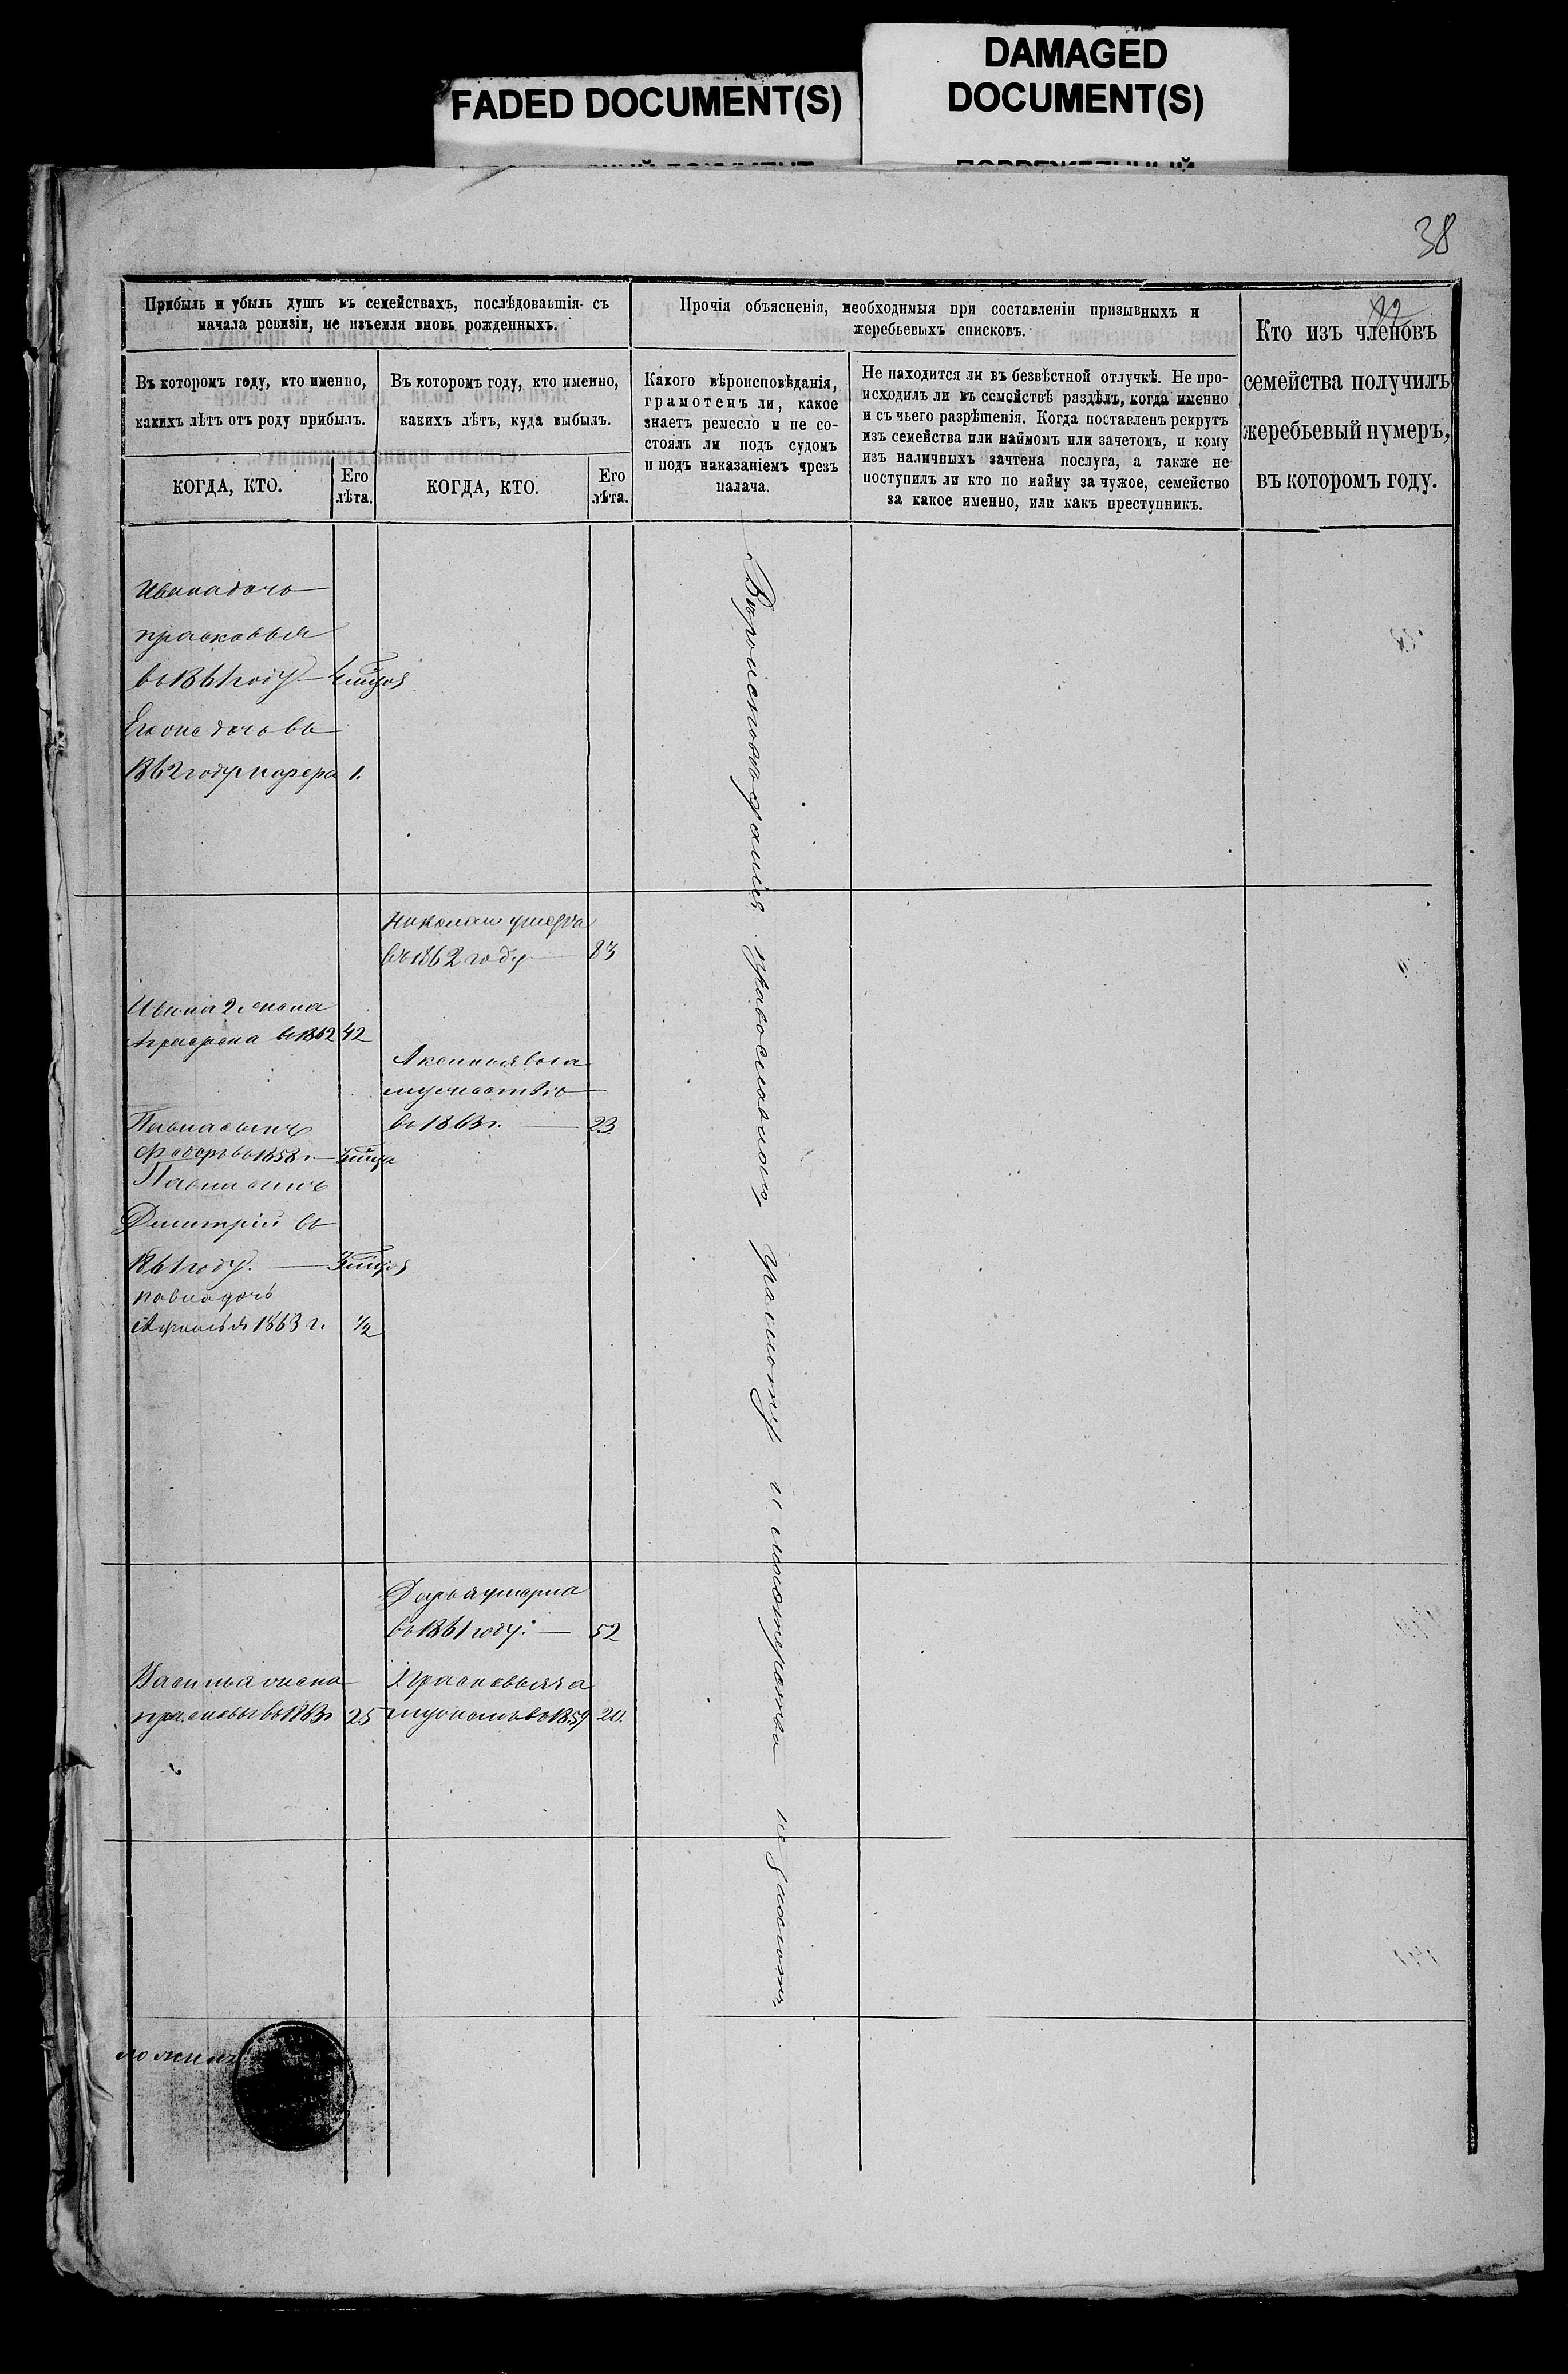 FADED DOCUMENT(S)
DAMAGED
DOCUMENT(S)
38
Прибыль и убыль душъ въ семействахъ, послѣдовавшія съ
начала ревизіи, не изъемля вновь рожденныхъ.
Прочія объясненія, необходимыя при составленіи призывныхъ и
жеребьевыхъ списковъ.
Кто изъ членовъ
семейства получилъ
жеребьевый нумеръ,
въ которомъ году.
Въ которомъ году, кто именно,
какихъ лѣтъ отъ роду прибылъ.
Въ которомъ году, кто именно,
какихъ лѣтъ, куда выбылъ.
Какого вѣроисповѣданія,
грамотенъ ли, какое
знаетъ ремесло и не со-
стоялъ ли подъ судомъ
и подъ наказаніемъ чрезъ
палача.
Не находится ли въ безвѣстной отлучкѣ. Не про-
исходилъ ли въ семействѣ раздѣлъ, когда именно
и съ чьего разрѣшенія. Когда поставленъ рекрутъ
изъ семейства или наймомъ или зачетомъ, и кому
изъ наличныхъ зачтена послуга, а также не
поступилъ ли кто по найму за чужое, семейство
за какое именно, или какъ преступникъ.
КОГДА, КТО.
Его
лѣта.
КОГДА, КТО.
Его
лѣта.
Ивана дочь
прасковья
въ 1861 году
Его дочь въ
1862 году 1.
Николай умеръ
въ 1862 году — 83
Ивана 2 жена
въ 1862 42
Аксинья
замужество
въ 1863 г. — 23
Павла сынъ
Федоръ въ 1858 г.
Павла сынъ
Димитрій въ
1861 году.
Павла дочь
1863 г. 1/2
Дарья умерла
въ 1861 году. — 52
Василья жена
прасковья въ 1863 г 25
Прасковья за
мужъ въ 1859 20.
Вѣроисповѣданія православнаго, грамоту и мастерства не знаютъ.